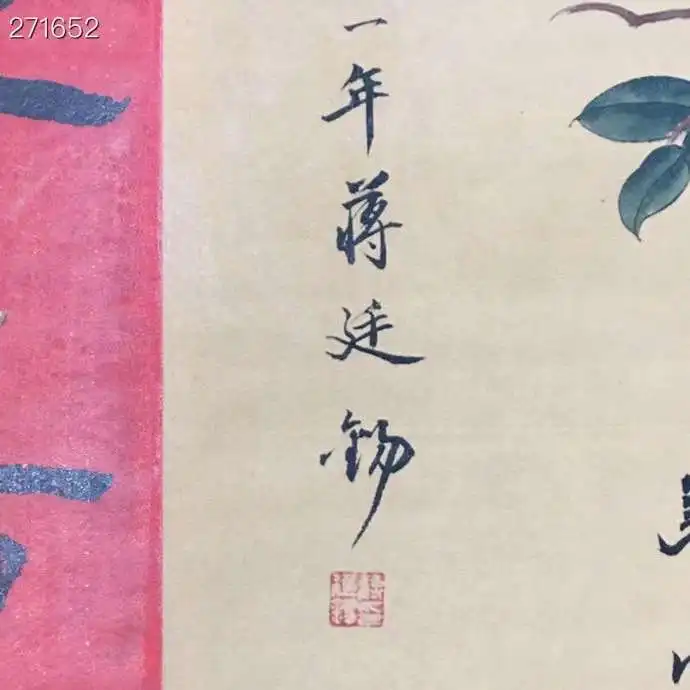 271652
一年蔣廷錫